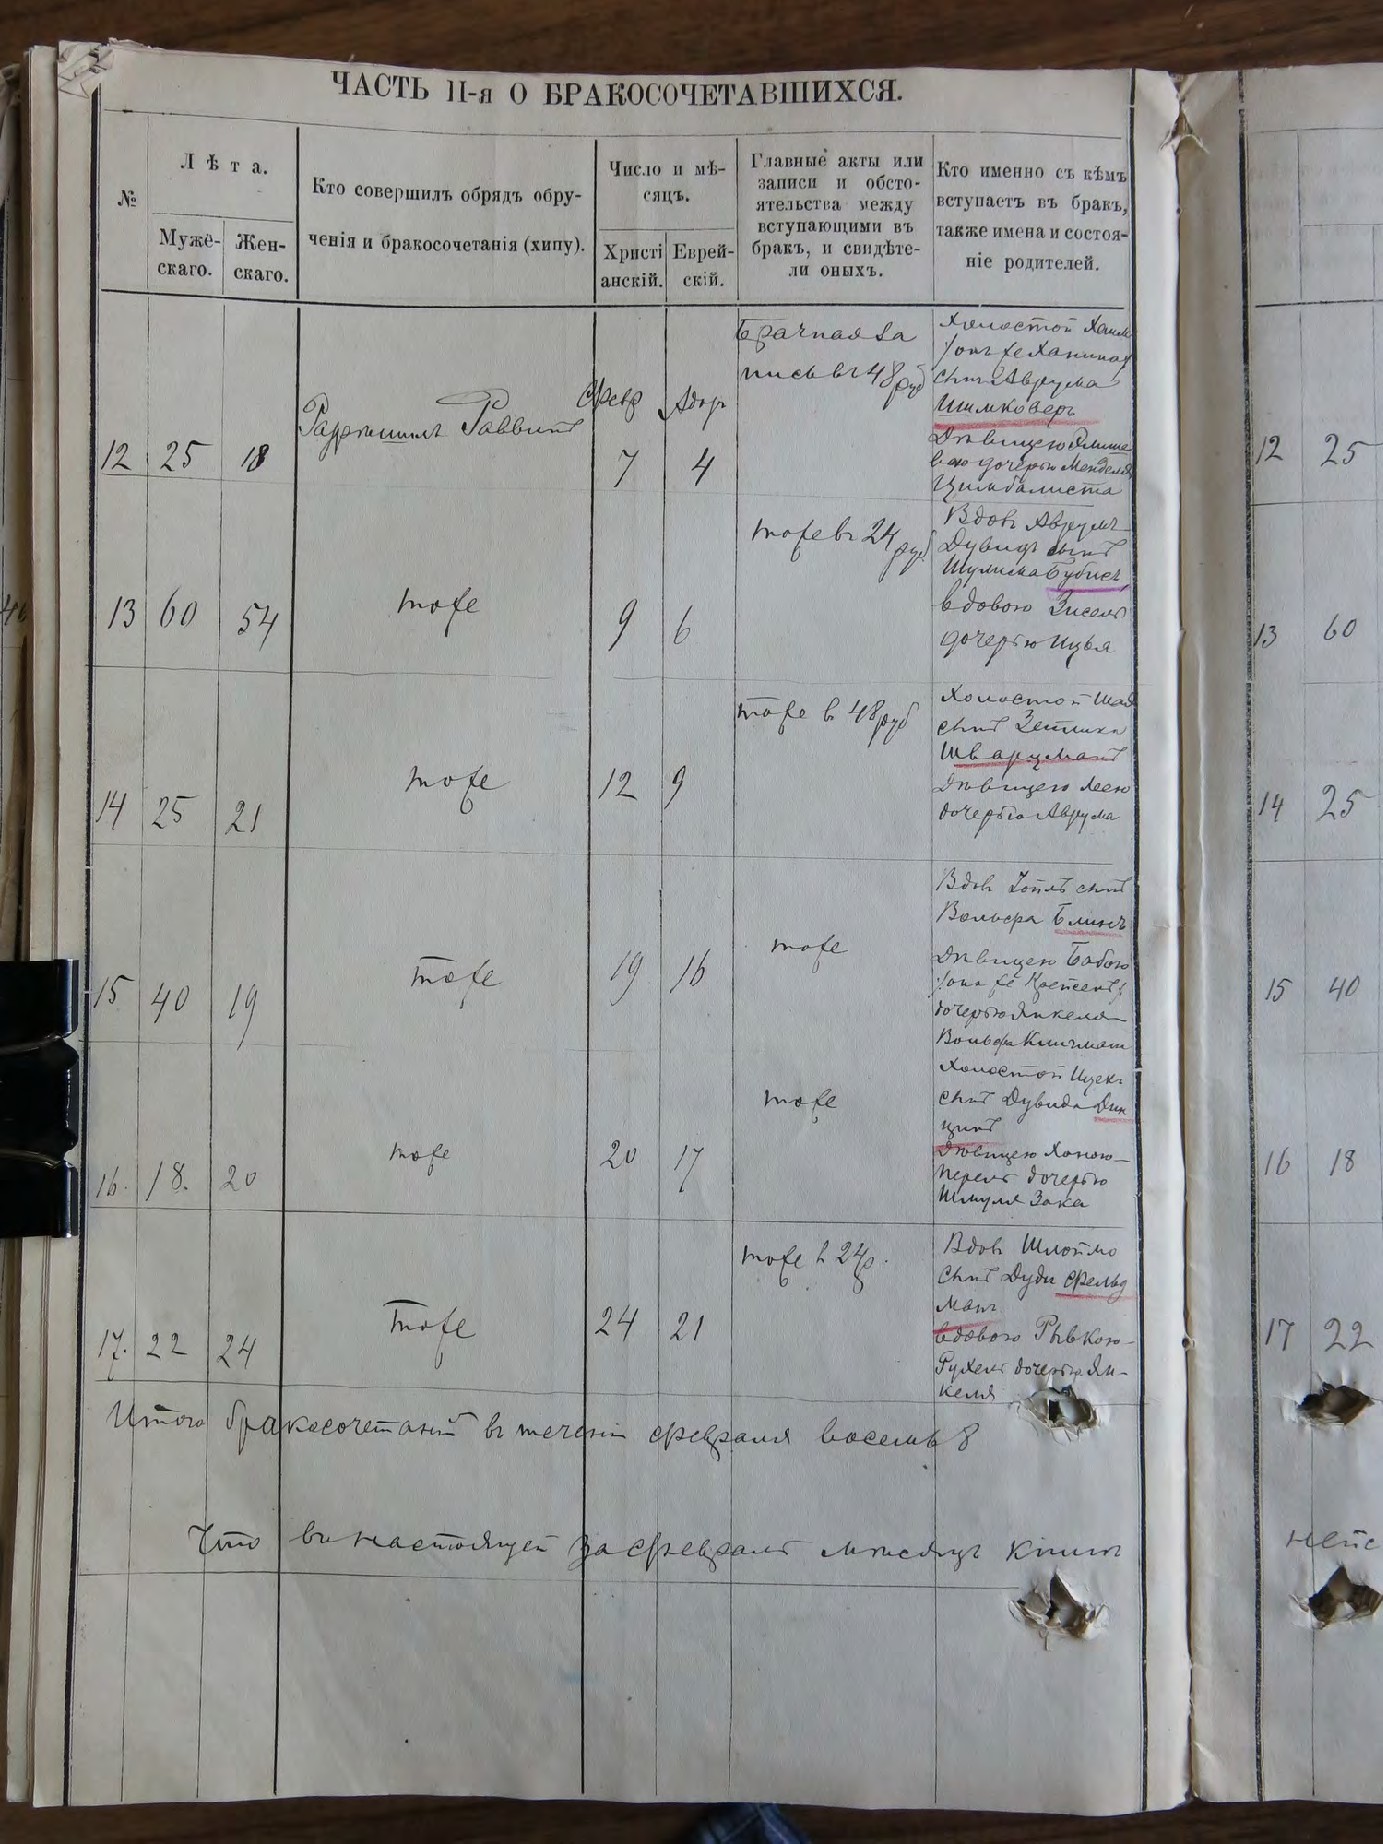 ЧАСТЬ II-я О БРАКОСОЧЕТАВШИХСЯ.
№
Лѣта.
Муже-
скаго.
Жен-
скаго.
Кто совершилъ обрядъ обру-
ченія и бракосочетанія (хипу).
Число и мѣ-
сяцъ.
Христі
анскій.
Еврей-
скій.
Главные акты или
записи и обсто-
ятельства между
вступающими въ
бракъ, и свидѣте-
ли оныхъ.
Кто именно съ кѣмъ
вступаетъ въ бракъ,
также имена и состоя-
ніе родителей.
12 25 18
Раввинъ
Февр Адор
7 4
Брачная за
пись въ 48 руб
Холостой Хаим
сынъ Аврума
Шимковеръ
Дѣвицею
дочерью Менделя
Цимбалиста
13 60 54
тоже
9 6
тоже въ 24 руб
Вдов Аврумъ
Дувидъ сынъ
Шулима Бубисъ
вдовою Зисель
дочерью Ицька
14 25 21
тоже
12 9
тоже в 48 руб
Холостой
сынъ Зейлика
Шварцманъ
Дѣвицею Леею
дочерью Аврума
15 40 19
тоже
19 16
тоже
Вдов сынъ
Вольфа
Дѣвицею Бабою
дочерью Янкеля
Вольфа
16. 18. 20
тоже
20 17
тоже
Холостой Ицекъ
сынъ Дувида Дин
цинъ
Дѣвицею Ханою-
Перель дочерью
Шмуля Зака
17. 22 24
тоже
24 21
тоже в 24р.
Вдов Шлоймо
сынъ Дуди Фельд
манъ
вдовою Рывкою-
Рухель дочерью Ян-
келя
Итого бракосочетаній въ теченіи февраля восемь 8
Что въ настоящей за февраль мѣсяцъ книгѣ
12 25
13 60
14 25
15 40
16 18
17 22